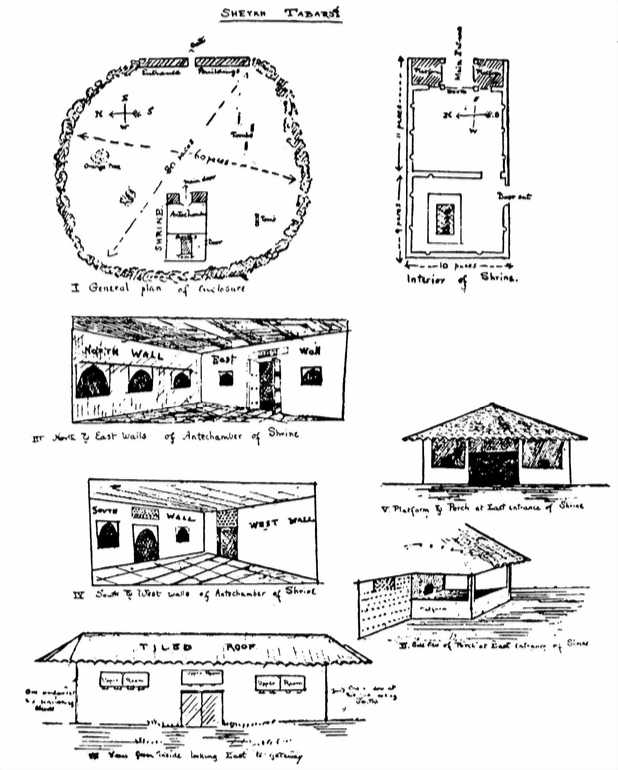 SHEYKH TABARSÍ
Gate
Entrance Buildings
E
N S
W
Tombs
80 paces
60 paces
Orange Trees
main door
SHRINE
Antechamber
Door
Tomb
Tank
I General plan of Enclosure
Main Entrance
Platform Platform
Door
E
N S
W
11 paces
Door out
9 paces
10 paces
Interior of Shrine.
NORTH WALL East Wall
III North & East Walls of Antechamber of Shrine
V Platform & Porch at East entrance of Shrine
SOUTH WALL WEST WALL
IV South & West walls of Antechamber of Shrine
Platform
Porch at East entrance of Shrine
TILED ROOF
Upper Room Upper Room Upper Room
View from inside looking East to gateway